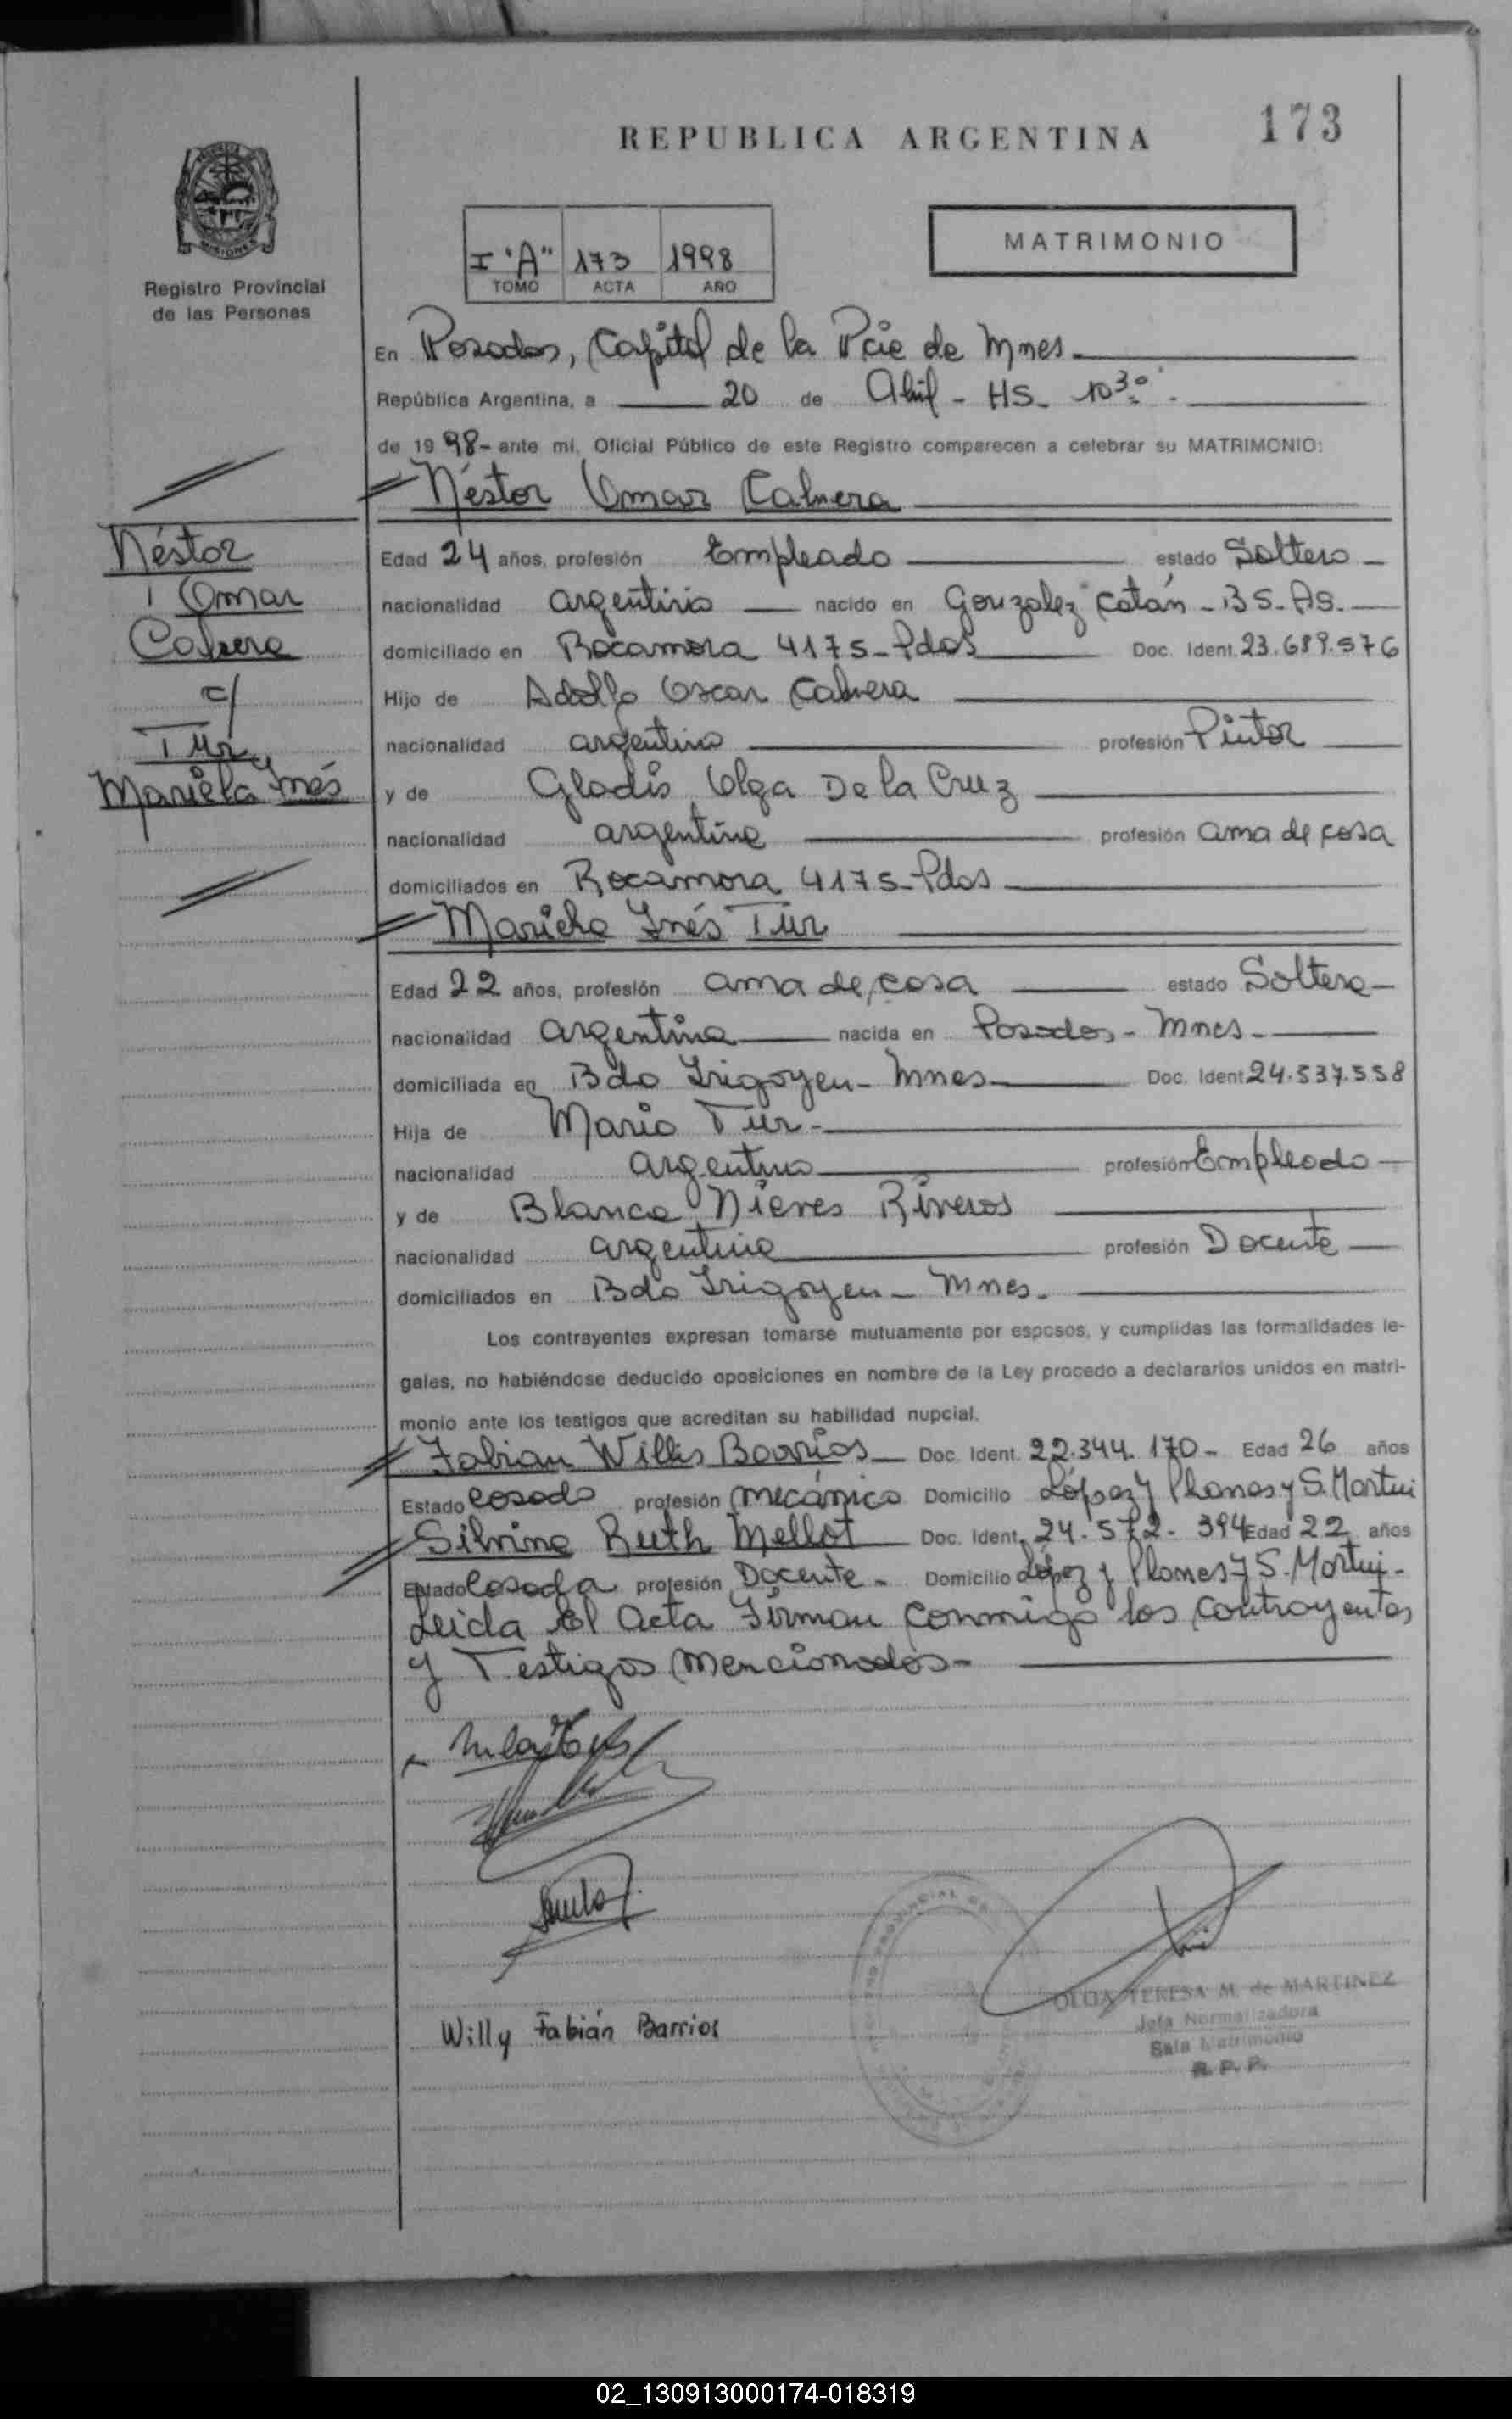 REPUBLICA ARGENTINA
173
MISIONES
Registro Provincial
de las Personas
I "A" 173 1998
TOMO ACTA AÑO
MATRIMONIO
En Posadas, Capital de la Pcie de Mnes.
República Argentina, a 20 de Abril - HS. 10 30
de 1998- ante mi, Oficial Público de este Registro comparecen a celebrar su MATRIMONIO:
Néstor Omar Cabrera
Néstor
Omar
Cabrera
c/
Tur
Mariela Inés
Edad 24 años, profesión Empleado estado Soltero
nacionalidad argentino nacido en Gonzalez Catán - BS. AS.
domiciliado en Rocamora 4175 - Pdas Doc. Ident. 23.689.576
Hijo de Adolfo Oscar Cabrera
nacionalidad argentino profesión Pintor
y de Gladis Olga De la Cruz
nacionalidad argentina profesión ama de casa
domiciliados en Rocamora 4175 - Pdas
Mariela Inés Tur
Edad 22 años, profesión ama de casa estado Soltera
nacionalidad argentina nacida en Posadas - Mnes.
domiciliada en Bdo Irigoyen - Mnes Doc. Ident 24.537.558
Hija de Mario Tur.
nacionalidad argentino profesión Empleado
y de Blanca Nieves Riveros
nacionalidad argentina profesión Docente
domiciliados en Bdo Irigoyen - Mnes.
Los contrayentes expresan tomarse mutuamente por esposos, y cumplidas las formalidades le-
gales, no habiéndose deducido oposiciones en nombre de la Ley procedo a declararlos unidos en matri-
monio ante los testigos que acreditan su habilidad nupcial.
Fabian Willis Barrios Doc. Ident. 22.344.170 - Edad 26 años
Estado casado profesión mecánico Domicilio López y Planes y S. Martin
Silvina Ruth Mellot Doc. Ident. 24.572.394 Edad 22 años
Estado casada profesión Docente - Domicilio López y Planes y S. Martin -
Leida El acta Firman conmigo los contrayentes
y Testigos mencionados -
Willy Fabián Barrios
OLGA TERESA M. de MARTINEZ
Jefa Normalizadora
Sala Matrimonio
R. P. P.
02_130913000174-018319